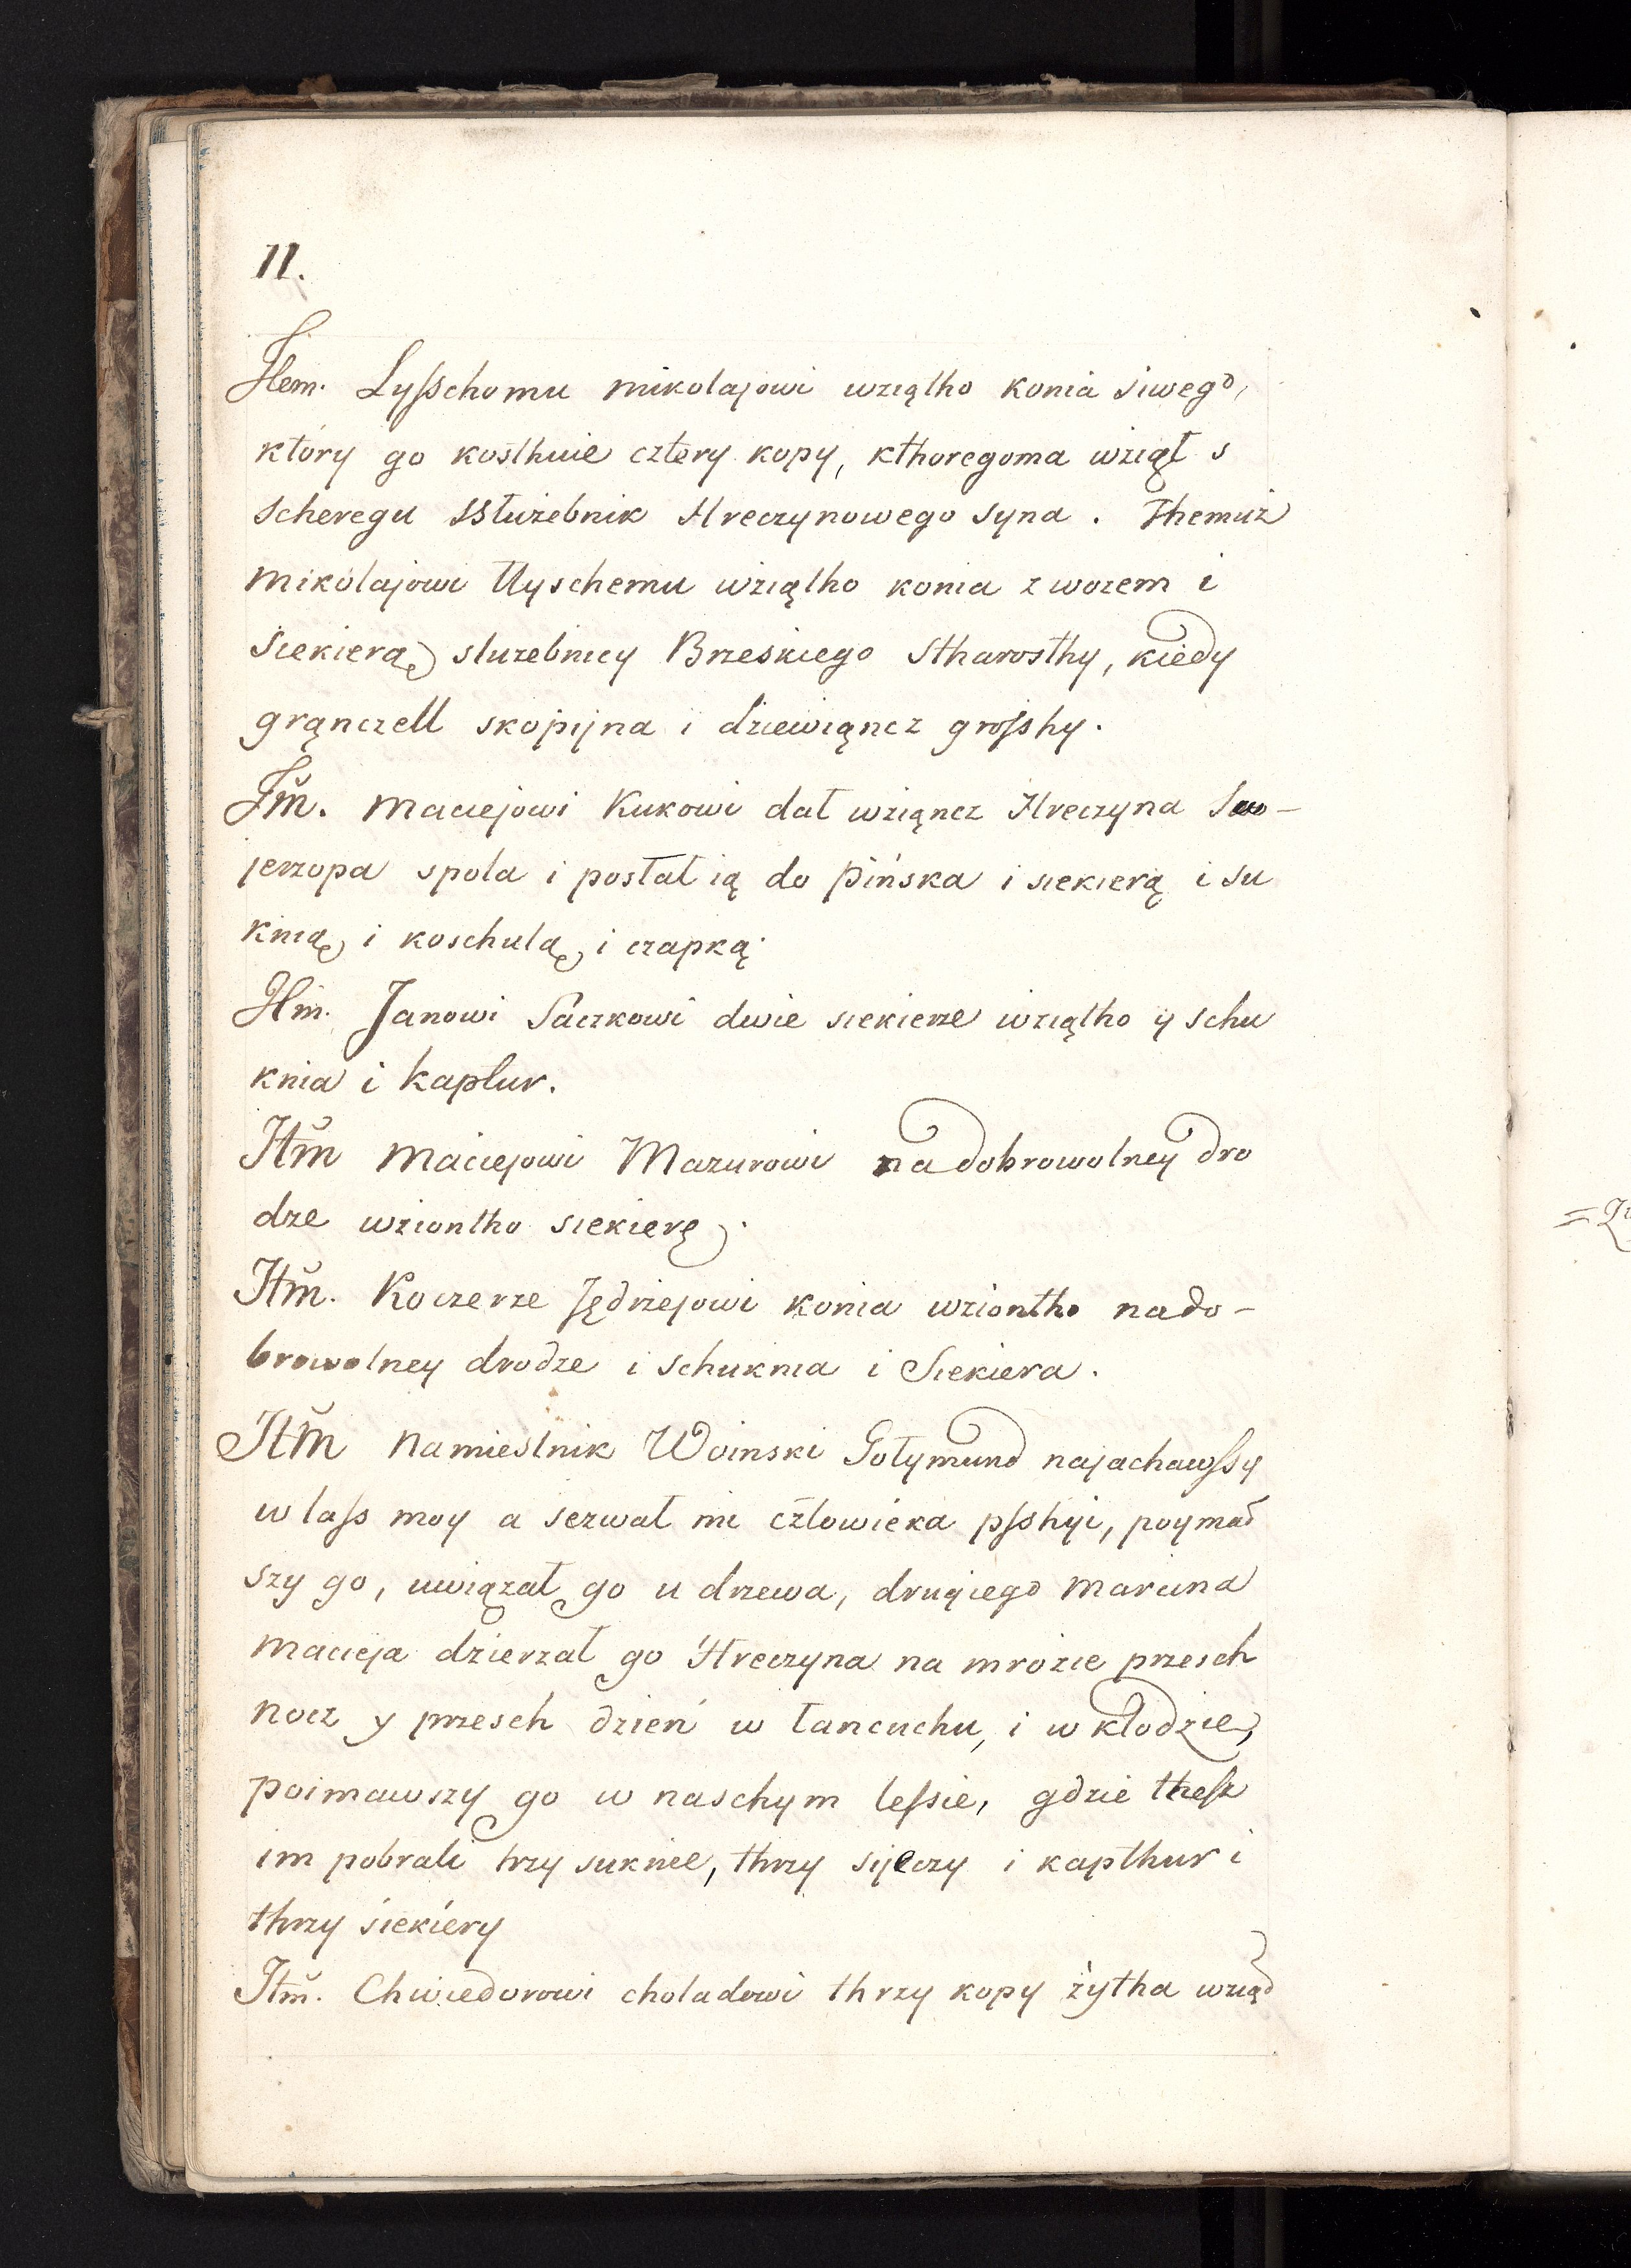 11.
Item. Lyſschomu mikolajowi wziąlho konia siwego,
który go kosthuie cztery kopy, kthoregoma wziął s
scheregu ssłużebnik Hreczynowego syna. Themuż
mikolajowi Uyschemu wziąlho konia z wozem i
siekierą służebnicy Brzeskiego Stharosthy, kiedy
grąnczell skopijna i dziewiąncz groſshy.
Itm̃. Maciejowi Kukowi dał wziąncz Hreczyna Swo-
jerzopa spola i posłał ią do Pińska i siekierą i su
knią i koschulą, i czapką.
Itm. Janowi Saczkowi dwie siekierze wziąlho y schu
knia i kaptur.
Itm̃ Maciejowi Mazurowi na dobrowolney dro
dze wziontho siekierę.
Itm̃. Koczerze Jędrzejowi konia wziontho nado-
browolney drodze i schuknia i Siekiera.
Itm̃ Namiestnik Woinski Gołymund najachawſsy
w laſs moy a sezwał mi człowieka pſshyi, poymad
szy go, uwiązał go u drzewa, drugiego Marcina
Macieja dzierzał go Hreczyna na mrozie przesch
nocz y przesch dzień w łancuchu, i w kłodzie,
poimawszy go w naschym leſsie, gdzie theſz
im pobrali trzy suknie, thrzy syeczy i kapthur i
thrzy siekiery
Itm̃. Chwiedorowi choladowi thrzy kopy żytha wziąd